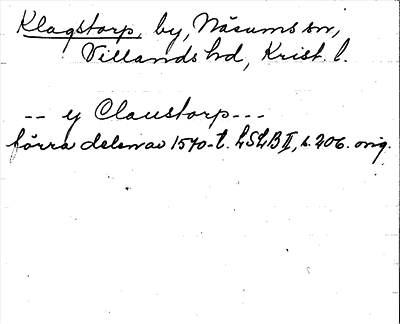 Klagstorp, by, Näsums sn,
Villands hd, Krist. l.
-- y Claustorp---
förra delen av 1570-t. LSLB II, s. 206. orig.